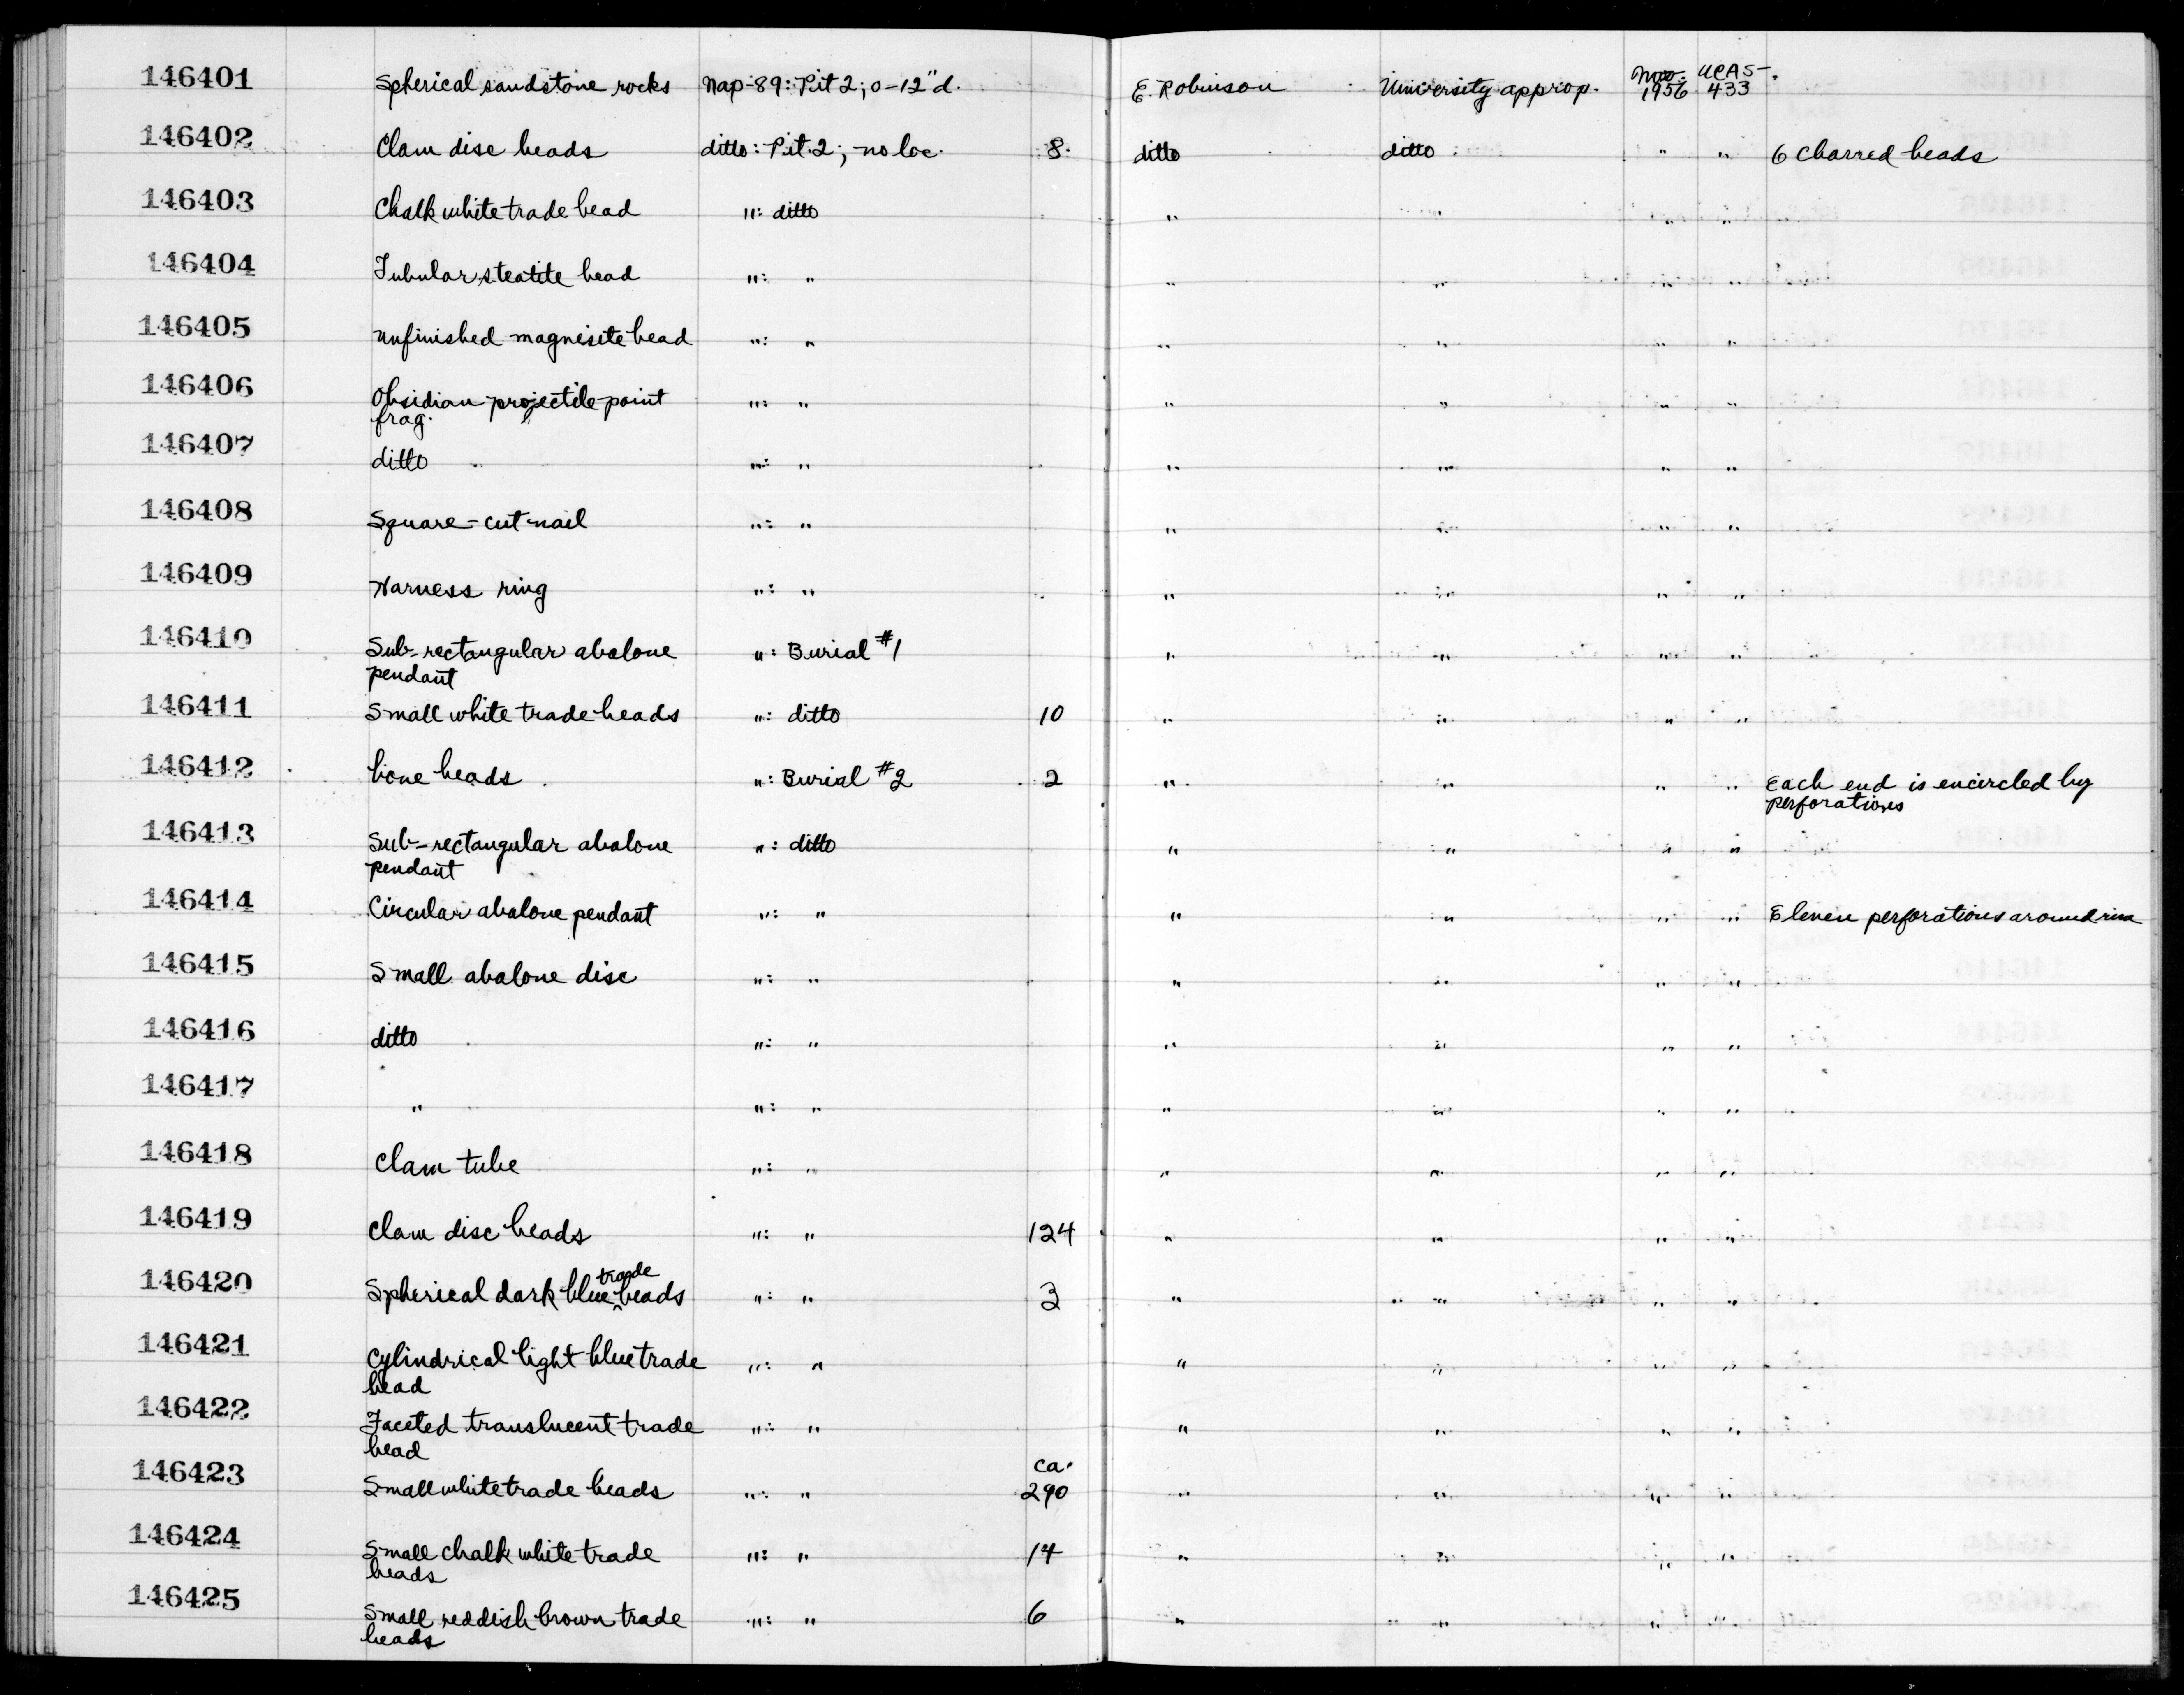 146401 Spherical sandstone rocks Nap-89: Pit 2; 0-12"d. E. Robinson University approp. Nov. 1956 UCAS-433
146402 Clam disc beads ditto: Pit 2; no loc. 8 ditto ditto " " 6 Charred beads
146403 Chalk white trade bead ": ditto " " " "
146404 Tubular steatite bead ": " " " " "
146405 Unfinished magnisite bead ": " " " " "
146406 Obsidian projectile point ": " " " " "
frag.
146407 ditto ": " " " " "
146408 Square-cut nail ": " " " " "
146409 Harness ring ": " " " " "
146410 Sub-rectangular abalone ": Burial #1 " " " "
pendant
146411 Small white trade beads ": ditto 10 " " " "
146412 bone beads ": Burial #2 2 " " " " Each end is encircled by
perforations
146413 Sub-rectangular abalone ": ditto " " " "
pendant
146414 Circular abalone pendant ": " " " " " Eleven perforations around rim
146415 Small abalone disc ": " " " " "
146416 ditto ": " " " " "
146417 " ": " " " " "
146418 Clam tube ": " " " " "
146419 Clam disc beads ": " 124 " " " "
146420 Spherical dark blue trade beads ": " 3 " " " "
146421 Cylindrical light blue trade ": " " " " "
bead
146422 Faceted translucent trade ": " " " " "
bead
146423 Small white trade beads ": " ca. 290 " " " "
146424 Small chalk white trade ": " 14 " " " "
beads
146425 Small reddish brown trade ": " 6 " " " "
beads